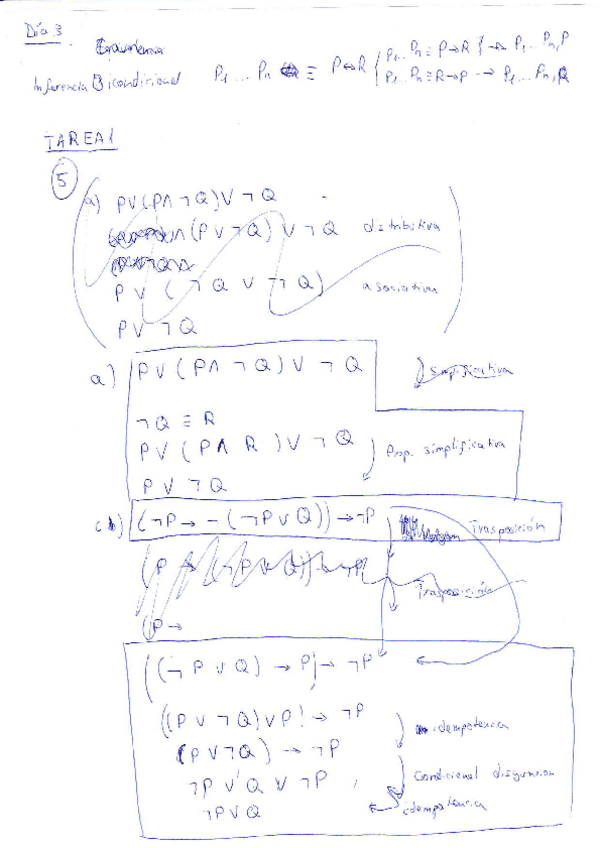 Día 3
Inferencia Bicondicional P₁ ... Pₙ ≡ P↔R { P₁...Pₙ ≡ P→R } → P₁...Pₙ, P
P₁...Pₙ ≡ R→P → P₁...Pₙ, R
TAREA 1
5
a) P∨(P∧¬Q)∨¬Q
∧(P∨¬Q)∨¬Q distributiva
P∨(¬Q∨¬Q) asociativa
P∨¬Q
a) P∨(P∧¬Q)∨¬Q Simplificativa
¬Q ≡ R
P∨(P∧R)∨¬Q Prop. simplificativa
P∨¬Q
c) (¬P→-(¬P∨Q))→¬P Morgan Trasposición
(P→ Trasposición
(P→
((¬P∨Q)→P)→¬P
((P∨¬Q)∨P)→¬P idempotencia
(P∨¬Q)→¬P
¬P∨Q∨¬P condicional disyunción
¬P∨Q idempotencia